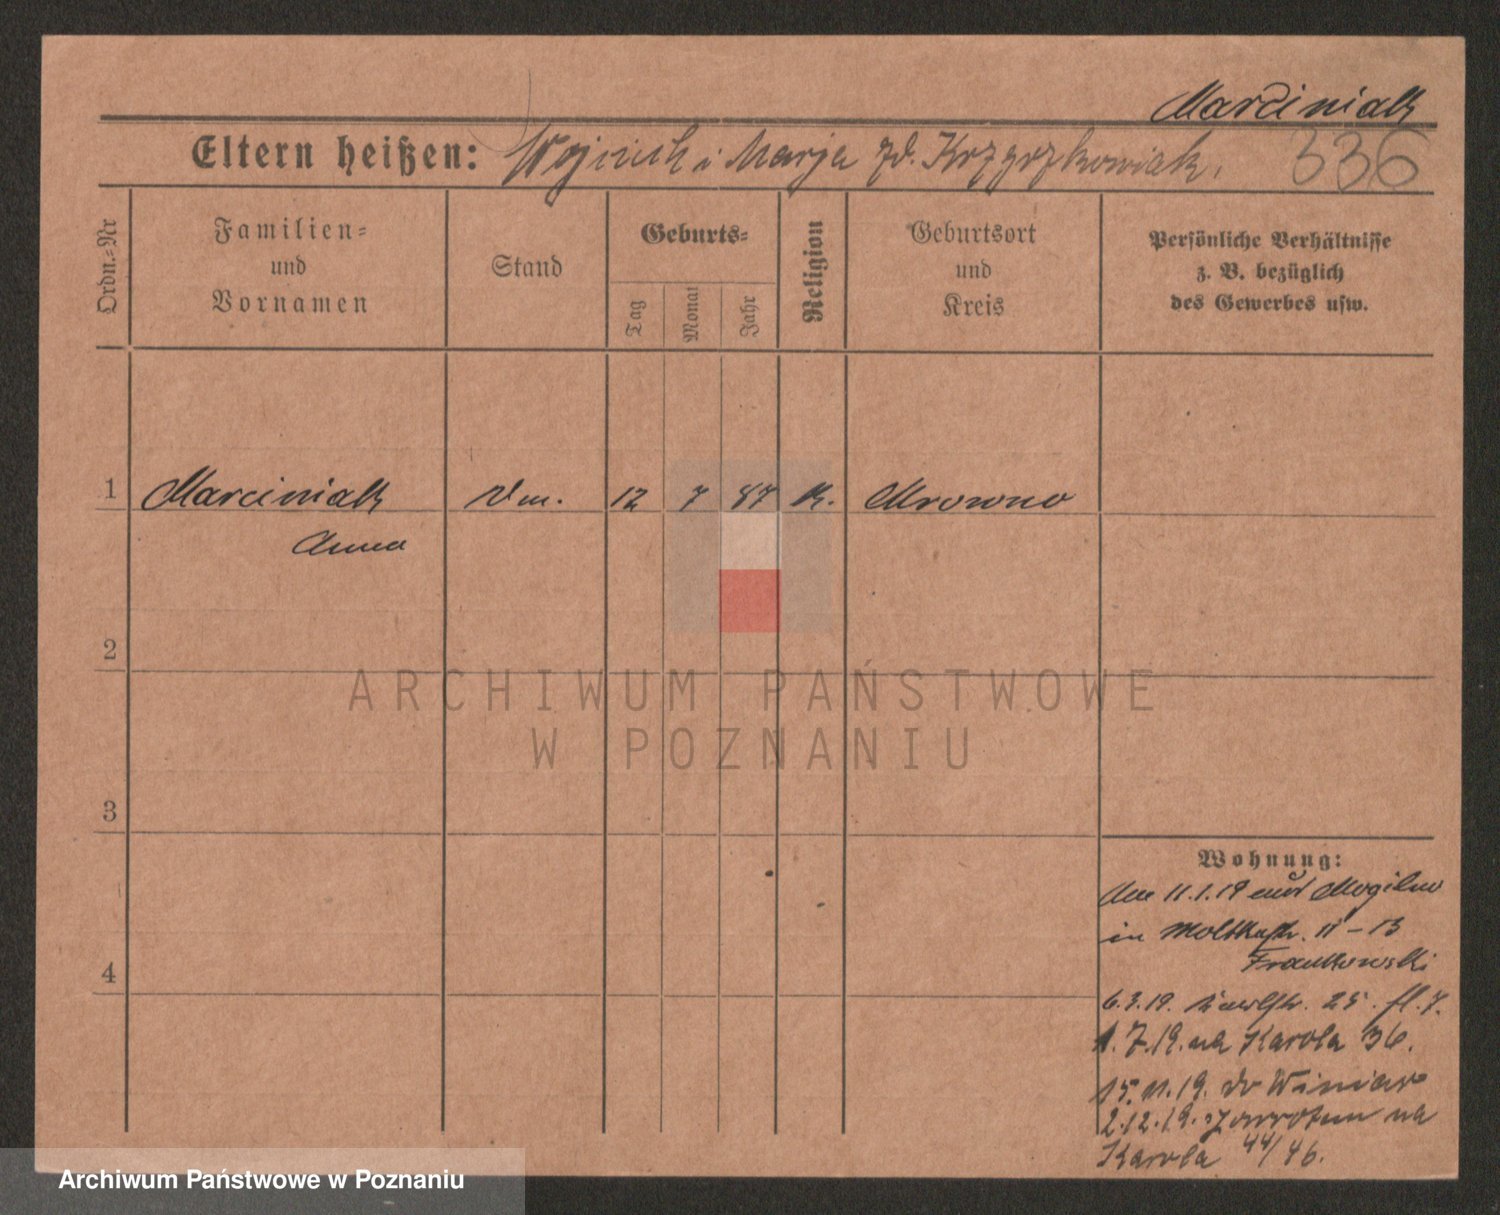 Marciniak
Eltern heißen: Wojciech i Marja zd. Krzyrzkowiak.
336
Ordn.-Nr
Familien-
und
Vornamen
Stand
Geburts-
Tag
Monat
Jahr
Religion
Geburtsort
und
Kreis
Persönliche Verhältnisse
z. B. bezüglich
des Gewerbes usw.
1 Marciniak 12 7 87 K. Mrowno
Anna
2
3
4
Wohnung:
Am 11.1.19 aus Mogilno
in Moltkestr. 11-13
Frankowski
6.3.19. 25. fl. 7.
1.7.19. na Karola 36.
15.11.19. do Winiar
2.12.19. z powrotem na
Karola 44/46.
ARCHIWUM PAŃSTWOWE
W POZNANIU
Archiwum Państwowe w Poznaniu